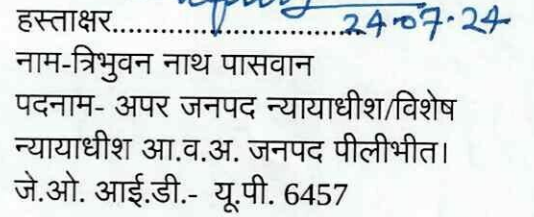 हस्ताक्षर.............................24-07-24
नाम-त्रिभुवन नाथ पासवान
पदनाम- अपर जनपद न्यायाधीश/विशेष
न्यायाधीश आ.व.अ. जनपद पीलीभीत।
जे.ओ. आई.डी.- यू.पी. 6457